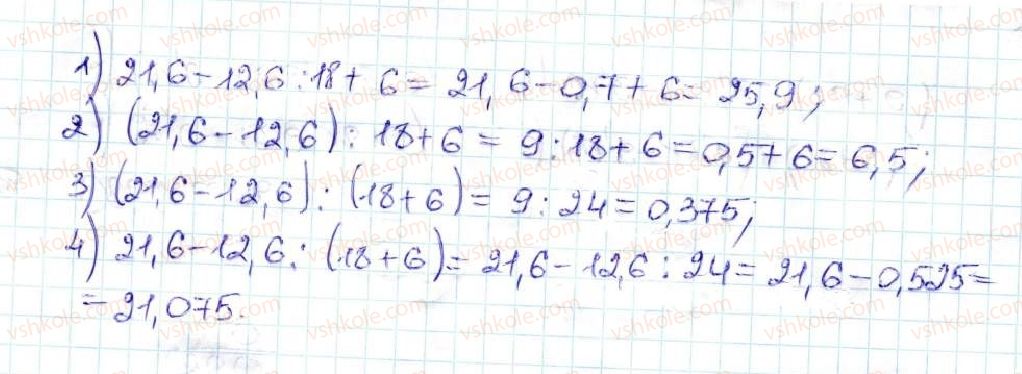 1) 21,6-12,6:18+6=21,6-0,7+6=25,9;
2) (21,6-12,6):18+6=9:18+6=0,5+6=6,5;
3) (21,6-12,6):(18+6)=9:24=0,375;
4) 21,6-12,6:(18+6)=21,6-12,6:24=21,6-0,525=
=21,075.
vshkole.com